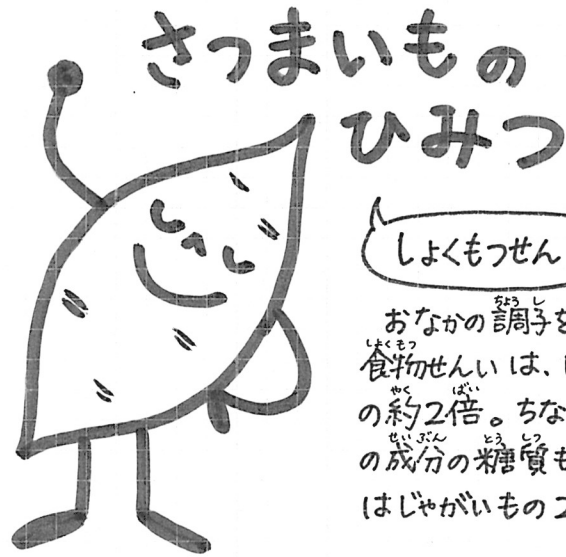 さつまいもの
ひみつ
しょくもつせん
おなかの調子を
食物せんいは、
の約2倍。ちな
の成分の糖質も
はじゃがいもの2